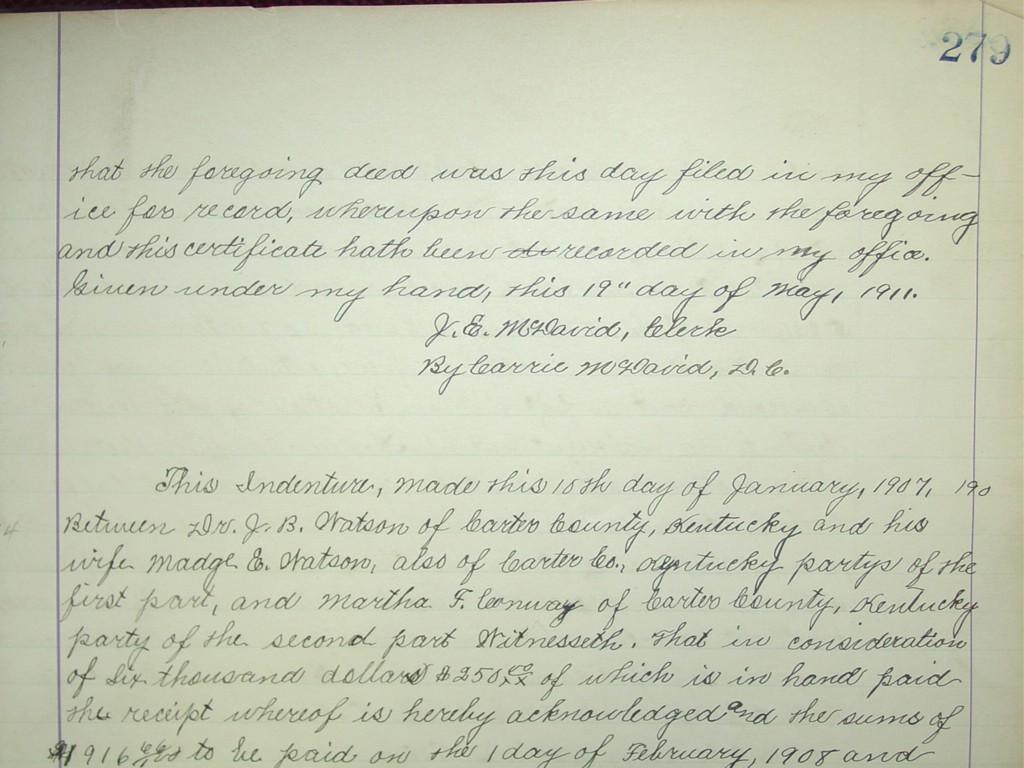 279
that the foregoing deed was this day filed in my off-
ice for record, whereupon the same with the foregoing
and this certificate hath been recorded in my office.
Given under my hand, this 19" day of May, 1911.
J. E. McDavid, Clerk
By Carrie McDavid, D. C.
This Indenture, made this 10th day of January, 1907, 190
Between Dr. J. B. Watson of Carter County, Kentucky and his
wife Madge E. Watson, also of Carter Co., Kentucky partys of the
first part, and Martha F. Conway of Carter County, Kentucky
party of the second part Witnesseth. That in consideration
of Six thousand dollars $250 of which is in hand paid
the receipt whereof is hereby acknowledged and the sums of
to be paid on the 1 day of February, 1908 and